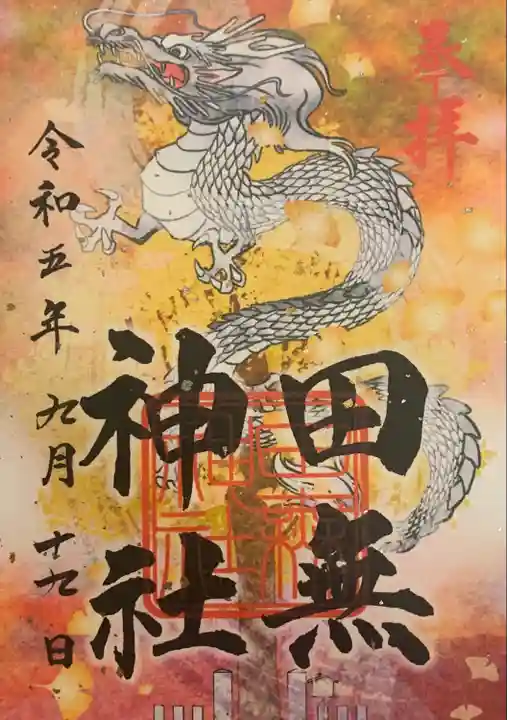 奉拝
田無
神社
令和五年 九月 十九日